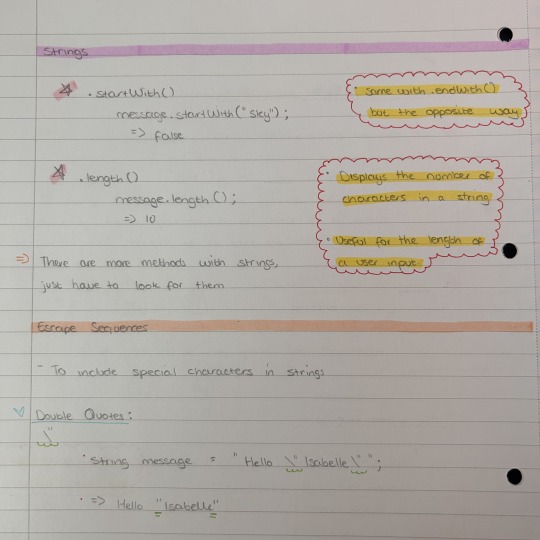 Strings
☆ .startWith()
• Same with .endWith()
message.startWith("Sky");
but the opposite way
=> false
☆ .length()
• Displays the number of
message.length();
characters in a string
=> 10
• Useful for the length of
a user input
=> There are more methods with strings,
just have to look for them
Escape Sequences
- To include special characters in strings
Double Quotes:
\"
• String message = "Hello \"Isabelle\"";
• => Hello "Isabelle"